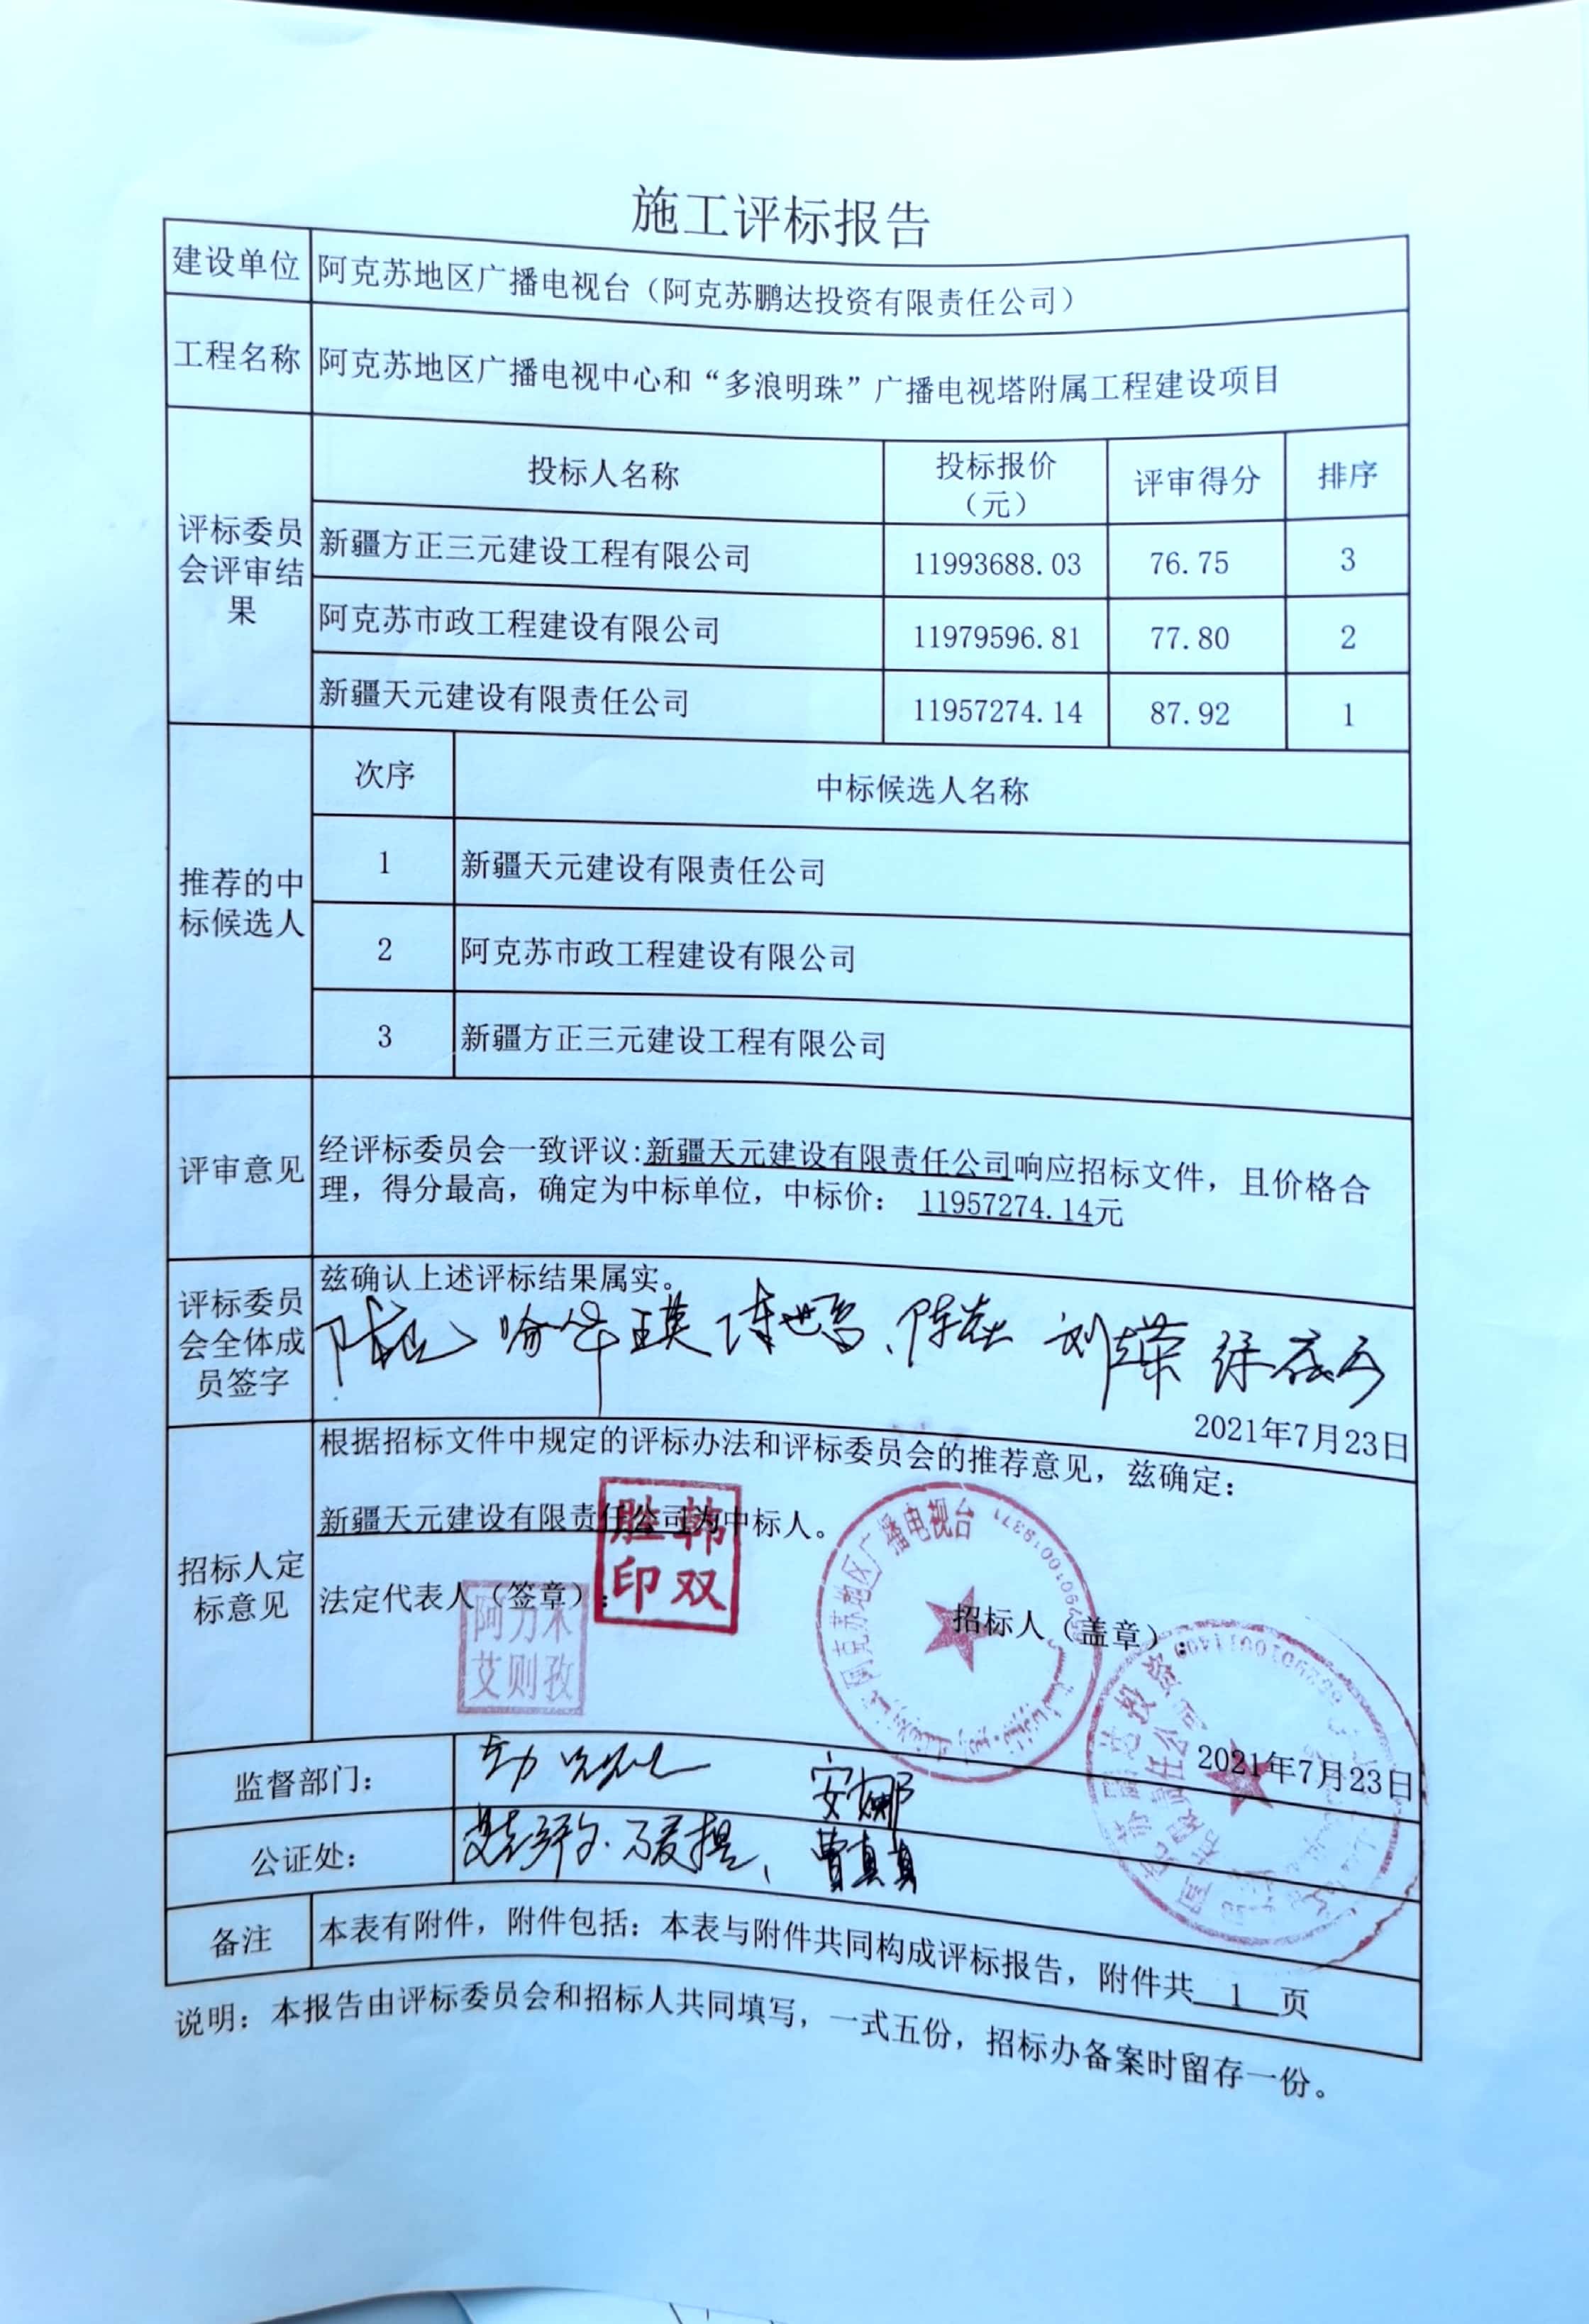 施工评标报告
建设单位 阿克苏地区广播电视台（阿克苏鹏达投资有限责任公司）
工程名称 阿克苏地区广播电视中心和“多浪明珠”广播电视塔附属工程建设项目
评标委员会评审结果
投标人名称 投标报价（元） 评审得分 排序
新疆方正三元建设工程有限公司 11993688.03 76.75 3
阿克苏市政工程建设有限公司 11979596.81 77.80 2
新疆天元建设有限责任公司 11957274.14 87.92 1
推荐的中标候选人
次序 中标候选人名称
1 新疆天元建设有限责任公司
2 阿克苏市政工程建设有限公司
3 新疆方正三元建设工程有限公司
评审意见
经评标委员会一致评议:新疆天元建设有限责任公司响应招标文件，且价格合
理，得分最高，确定为中标单位，中标价： 11957274.14元
评标委员会全体成员签字
兹确认上述评标结果属实。
2021年7月23日
招标人定标意见
根据招标文件中规定的评标办法和评标委员会的推荐意见，兹确定：
新疆天元建设有限责任公司为中标人。
法定代表人（签章）：
韩双胜印
阿力木艾则孜
招标人（盖章）：
阿克苏地区广播电视台
2021年7月23日
监督部门：
安娜
公证处：
曹真真
备注 本表有附件，附件包括：本表与附件共同构成评标报告，附件共 1 页
说明：本报告由评标委员会和招标人共同填写，一式五份，招标办备案时留存一份。